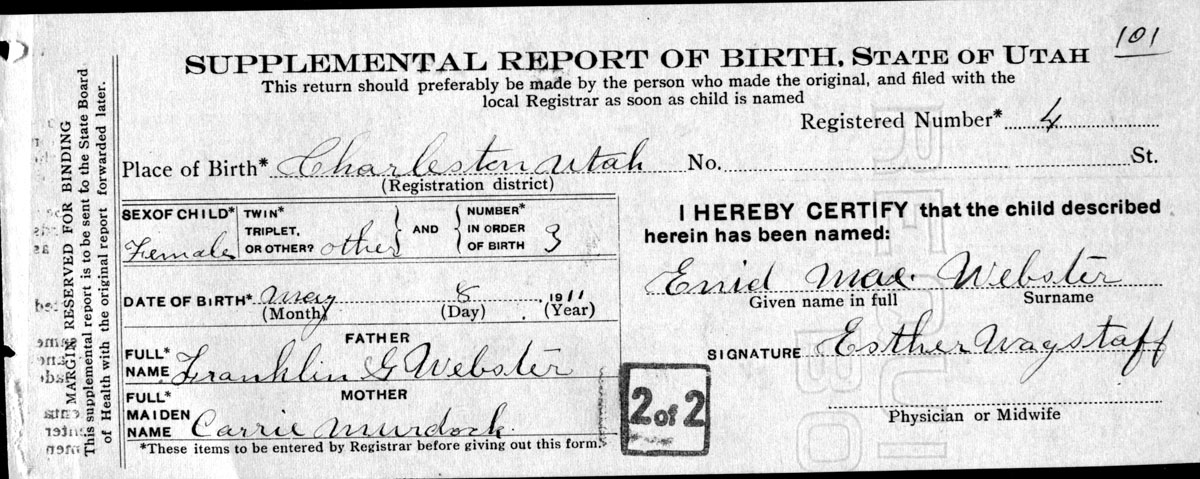 101
SUPPLEMENTAL REPORT OF BIRTH, STATE OF UTAH
This return should preferably be made by the person who made the original, and filed with the
local Registrar as soon as child is named
Registered Number* 4
Place of Birth* Charleston Utah No. St.
(Registration district)
SEX OF CHILD* Female
TWIN* TRIPLET, OR OTHER? other
AND
NUMBER* IN ORDER OF BIRTH 3
DATE OF BIRTH* May 8 1911
(Month) (Day) (Year)
FATHER
FULL* NAME Franklin G Webster
MOTHER
FULL* MAIDEN NAME Carrie Murdock
*These items to be entered by Registrar before giving out this form.
I HEREBY CERTIFY that the child described
herein has been named:
Enid Mae. Webster
Given name in full Surname
SIGNATURE Esther Wagstaff
Physician or Midwife
2 of 2
MARGIN RESERVED FOR BINDING
This supplemental report is to be sent to the State Board
of Health with the original report forwarded later.